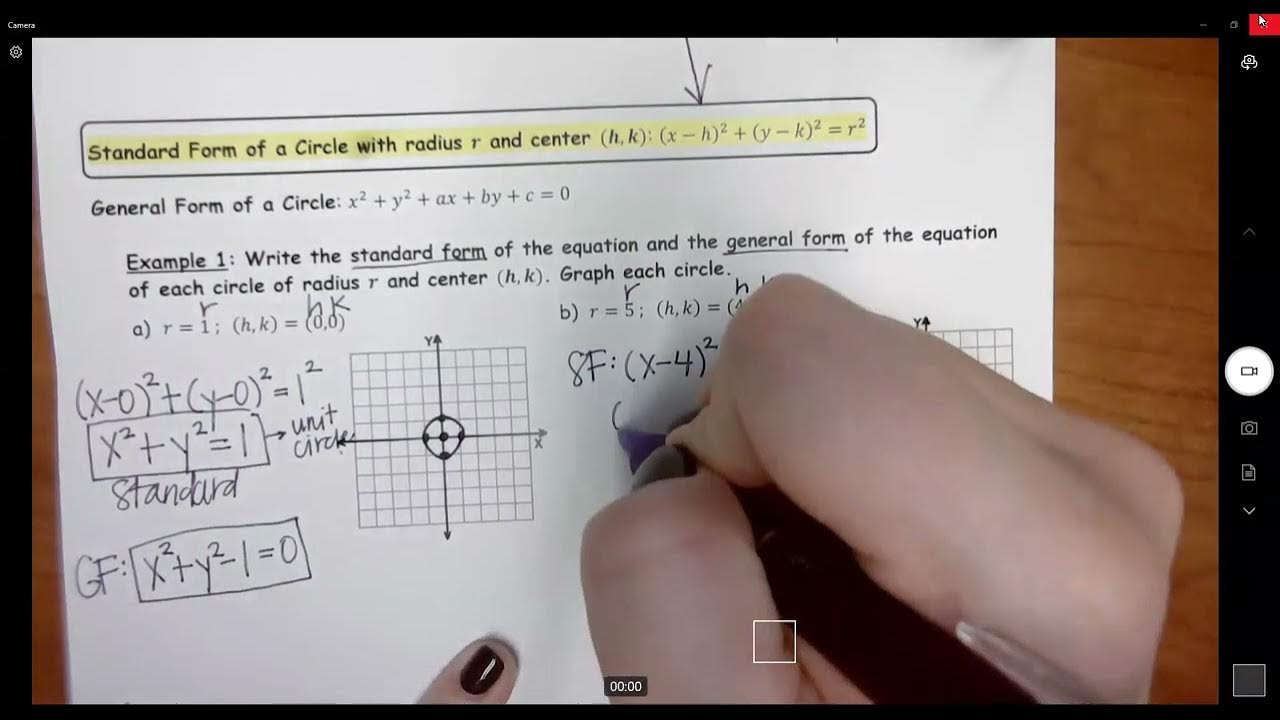 Camera
Standard Form of a Circle with radius r and center (h, k): (x − h)² + (y − k)² = r²
General Form of a Circle: x² + y² + ax + by + c = 0
Example 1: Write the standard form of the equation and the general form of the equation
of each circle of radius r and center (h, k). Graph each circle.
r h k
a) r = 1; (h, k) = (0,0)
(x-0)²+(y-0)²=1²
x²+y²=1 → unit
circle
Standard
GF: x²+y²-1=0
Y
X
r h
b) r = 5; (h, k) = (4
SF: (x-4)²
(
Y
00:00